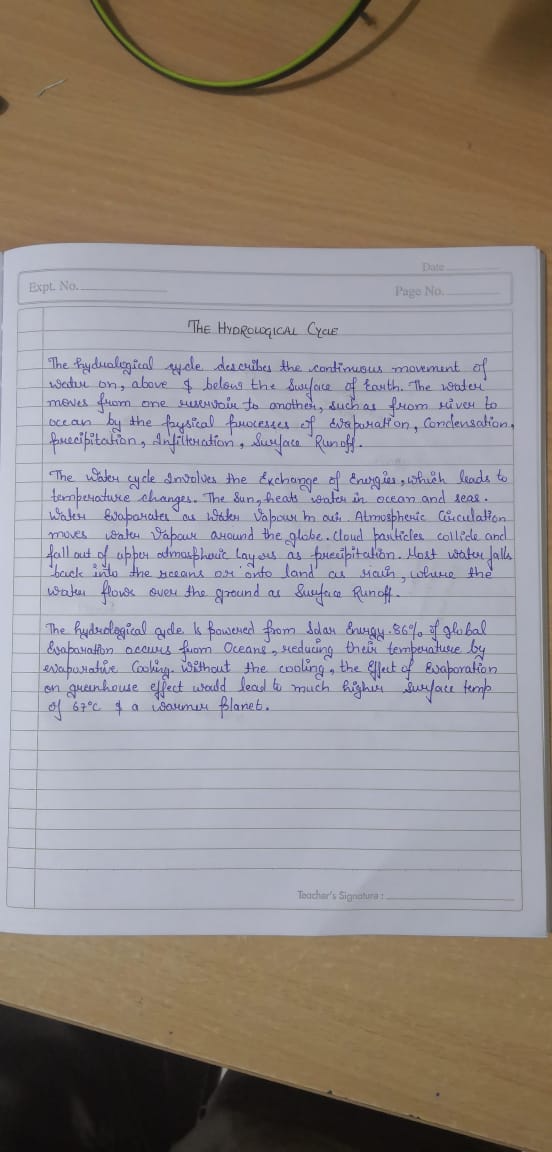 Date
Expt. No.
Page No.
THE HYDROLOGICAL CYCLE
The hydrological cycle describes the continuous movement of
water on, above & below the Surface of Earth. The water
moves from one reservoir to another, such as from river to
ocean by the physical processes of Evaporation, Condensation,
precipitation, Infilteration, Surface Runoff.
The Water cycle Involves the Exchange of Energies, which leads to
temperature changes. The Sun, heats water in ocean and seas.
Water Evaporates as Water Vapour in air. Atmospheric Circulation
moves water Vapour around the globe. Cloud particles collide and
fall out of upper atmospheric layers as precipitation. Most water falls
back into the oceans or onto land as rain, where the
water flows over the ground as Surface Runoff.
The hydrological cycle Is powered from Solar Energy. 86% of global
Evaporation occurs from Oceans, reducing their temperature by
evaporative Cooling. Without the cooling, the Effect of Evaporation
on greenhouse effect would lead to much higher Surface temp
of 67°C & a warmer Planet.
Teacher's Signature :